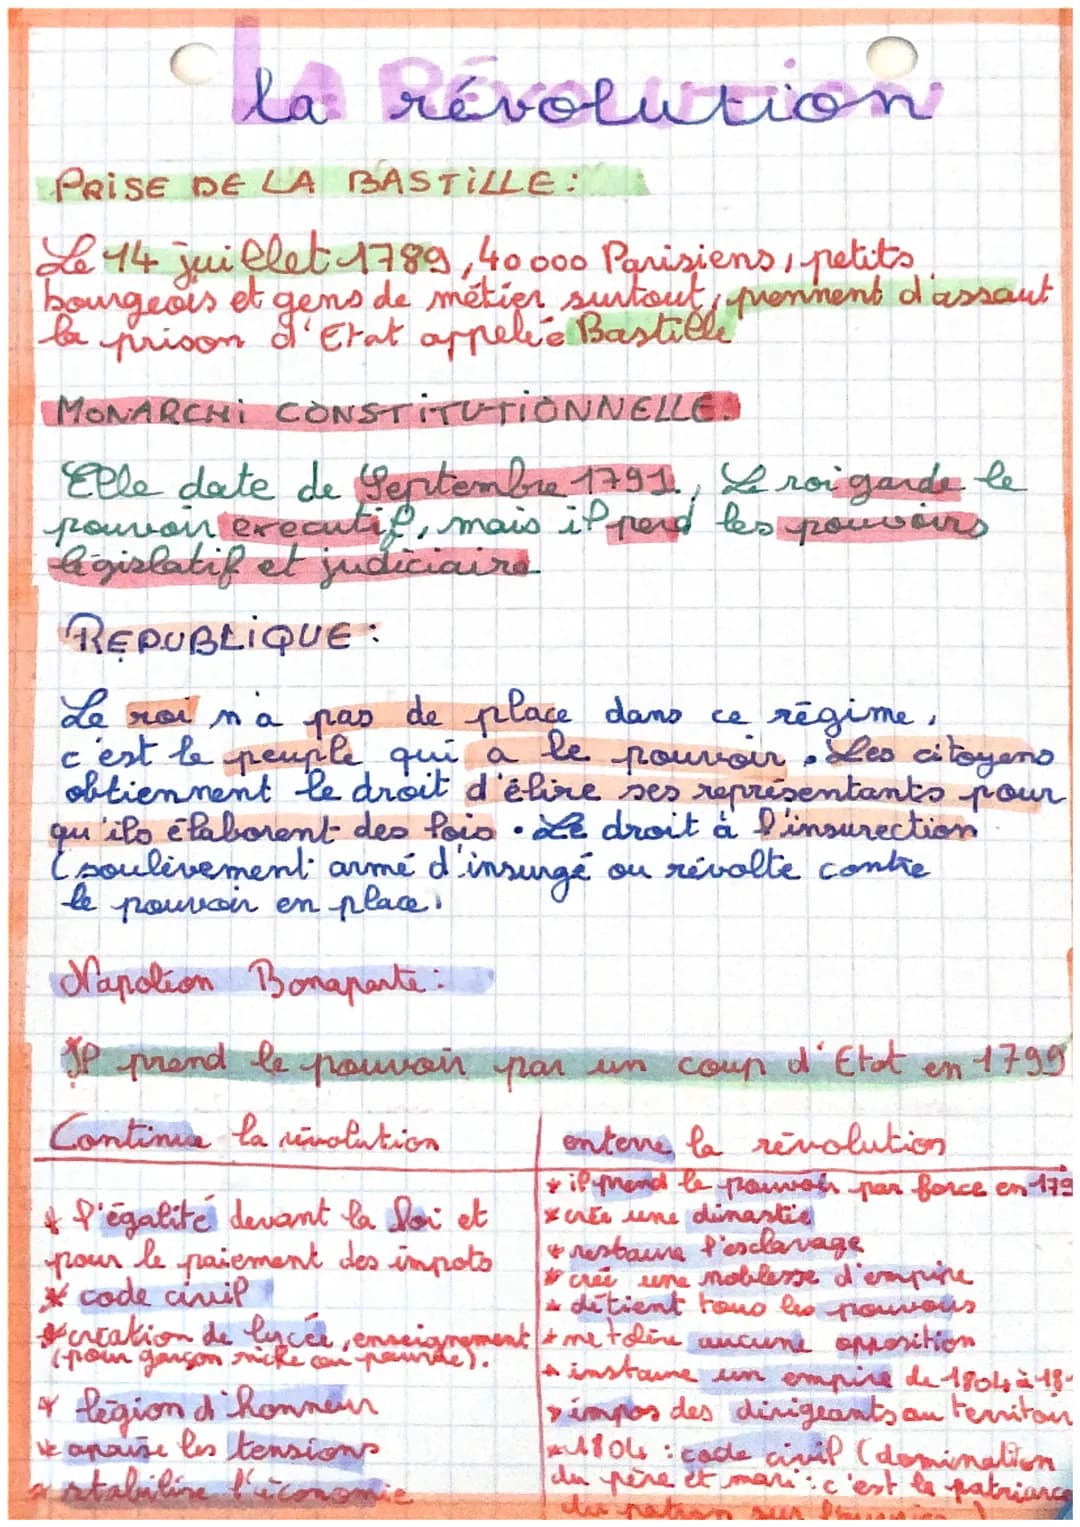 la révolution
PRISE DE LA BASTILLE :
Le 14 juillet 1789, 40 000 Parisiens, petits
bourgeois et gens de métier surtout, prennent d'assaut
la prison d'Etat appelée Bastille
MONARCHI CONSTITUTIONNELLE.
Elle date de Septembre 1791., Le roi garde le
pouvoir executif, mais il perd les pouvoirs
législatif et judiciaire
REPUBLIQUE :
Le roi n'a pas de place dans ce régime,
c'est le peuple qui a le pouvoir. Les citoyens
obtiennent le droit d'élire ses représentants pour
qu'ils élaborent des lois. Le droit à l'insurection
(soulèvement armé d'insurgé ou révolte contre
le pouvoir en place.
Napoléon Bonaparte :
Il prend le pouvoir par un coup d'Etat en 1799
Continue la révolution
* l'égalité devant la loi et
pour le paiement des impots
* code civil
* création de lycée, enseignement
(pour garçon riche ou pauvre).
* légion d'honneur
* apaise les tensions
* stabilise l'économie
enterre la révolution
* il prend le pouvoir par force en 179
* crée une dinastie
* restaure l'esclavage
* créé une noblesse d'empire
* détient tous les pouvoirs
* ne tolère aucune opposition
* instaure un empire de 1804 à 18
* impos des dirigeants au territoir
* 1804 : code civil (domination
du père et mari : c'est le patriarc
du patron sur l'ouvrier)